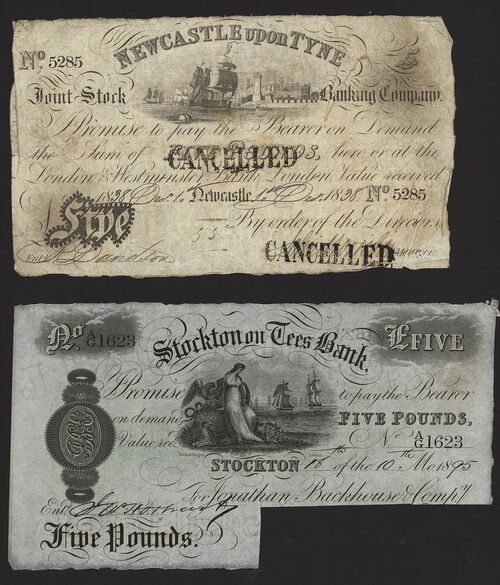 NEWCASTLE upon TYNE
No. 5285
£5
Joint-Stock Banking Company.
Promise to pay the Bearer on Demand
the Sum of FIVE POUNDS, here or at the
CANCELLED
London & Westminster Bank London Value received
1838 Decr. 1st Newcastle 1st Decr. 1838 No 5285
By order of the Directors
Five
55
Entd. Davidson
Manager
CANCELLED
No. A/G 1623
Stockton on Tees Bank.
£FIVE
Promise to pay the Bearer
on demand FIVE POUNDS,
Value recd No A/G 1623
STOCKTON 18th of the 10th Mo 1895
For Jonathan Backhouse & Compy
Entd.
Five Pounds.